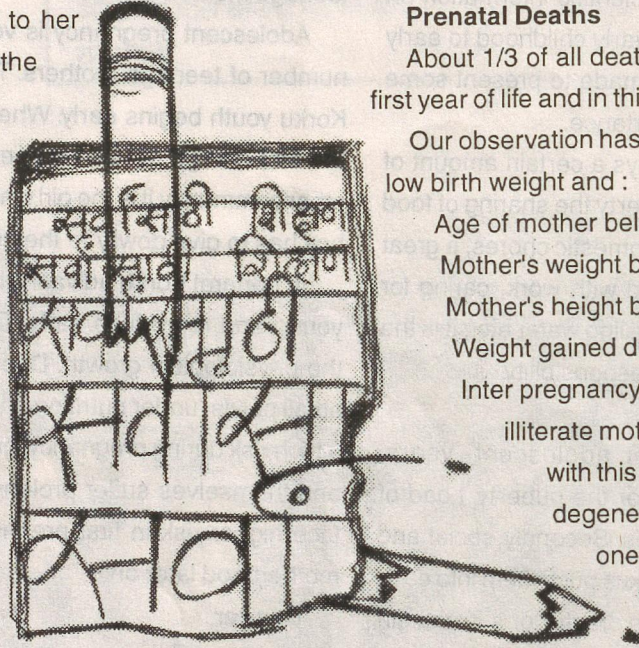 to her
the
Prenatal Deaths
About 1/3 of all deat
first year of life and in thi
Our observation has
low birth weight and :
Age of mother bel
Mother's weight b
Mother's height b
Weight gained d
Inter pregnancy
illiterate mot
with this
degene
one
शीक्षण